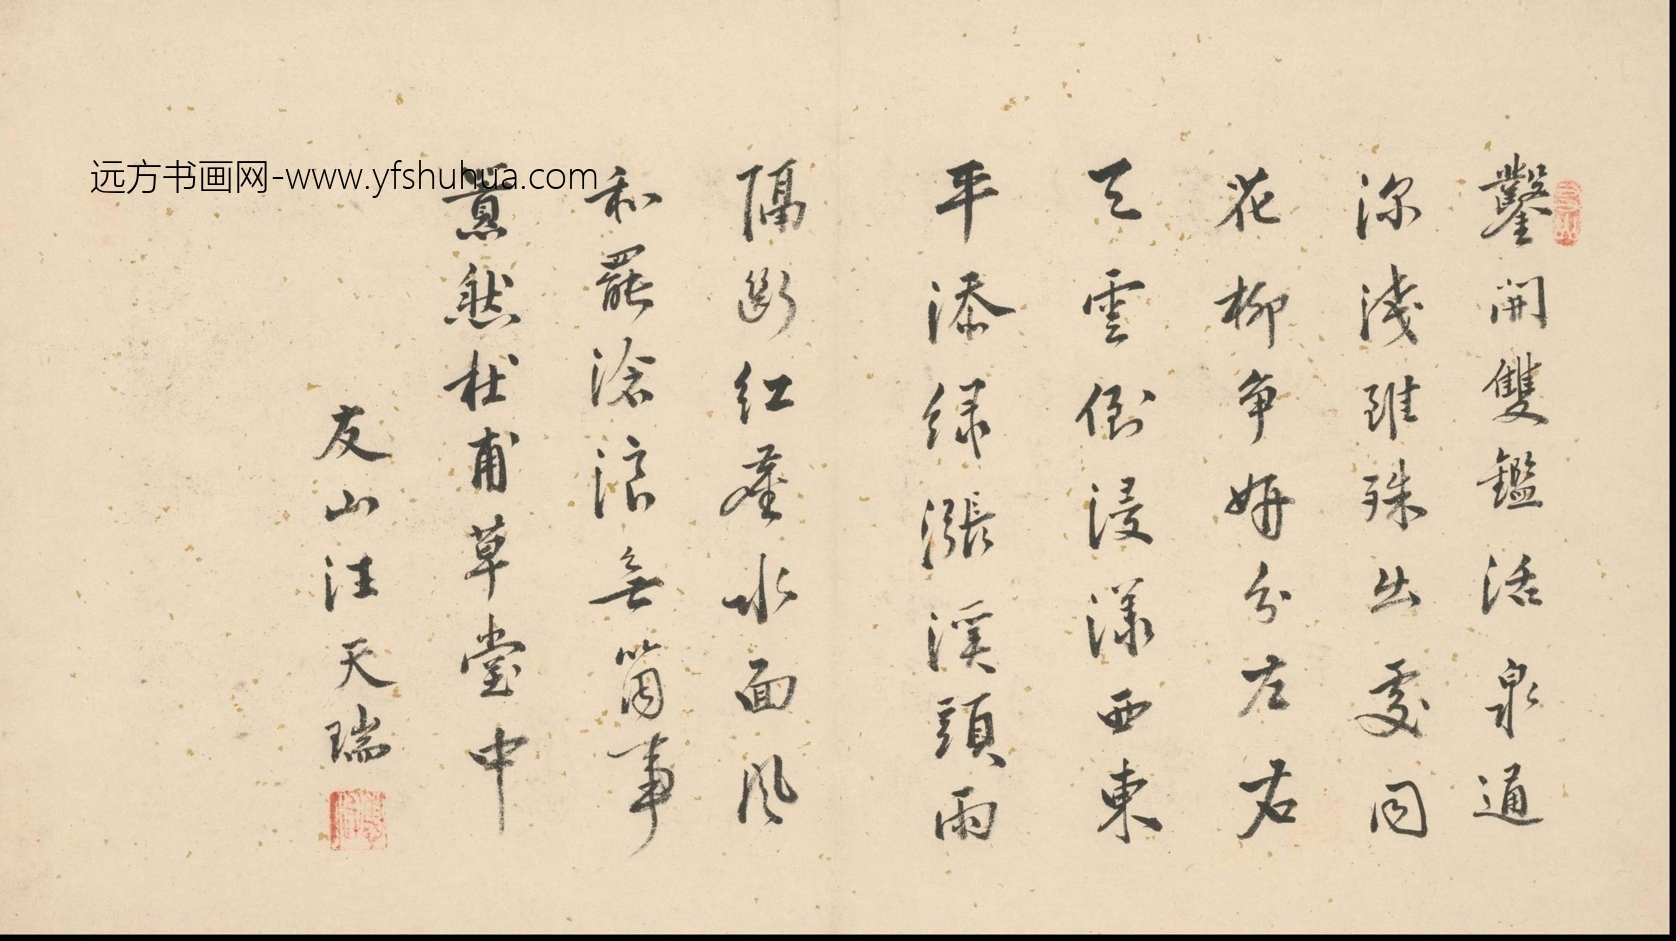 远方书画网-www.yfshuhua.com
鑿開雙鑑活泉通
深淺雖殊出處同
花柳争妍分左右
天雲倒浸漾西東
平添緑漲溪頭雨
隔斷紅塵水面風
和罷滄浪無箇事
然杜甫草堂中
友山汪天瑞